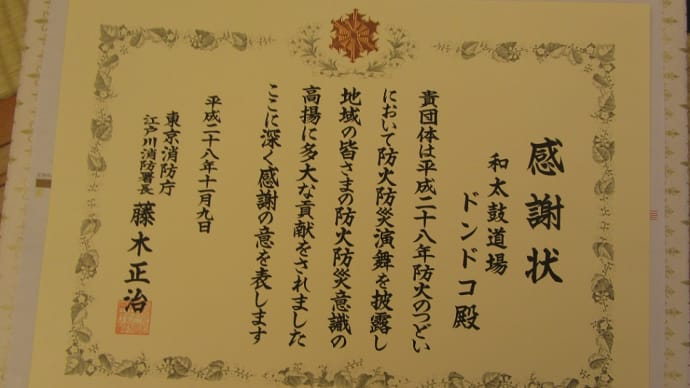 感謝状
和太鼓道場
ドンドコ殿
貴団体は平成二十八年防火のつどい
において防火防災演舞を披露し
地域の皆さまの防火防災意識の
高揚に多大な貢献をされました
ここに深く感謝の意を表します
平成二十八年十一月九日
東京消防庁
江戸川消防署長
藤木正治